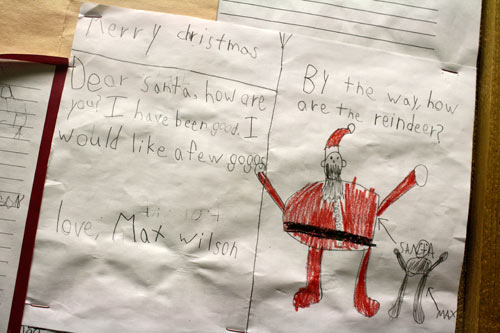 Merry christmas
Dear santa, how are
you? I have been good. I
would like a few goggs
love, Mat wilson
BY the way, how
are the reindeer?
SANTA
MAX